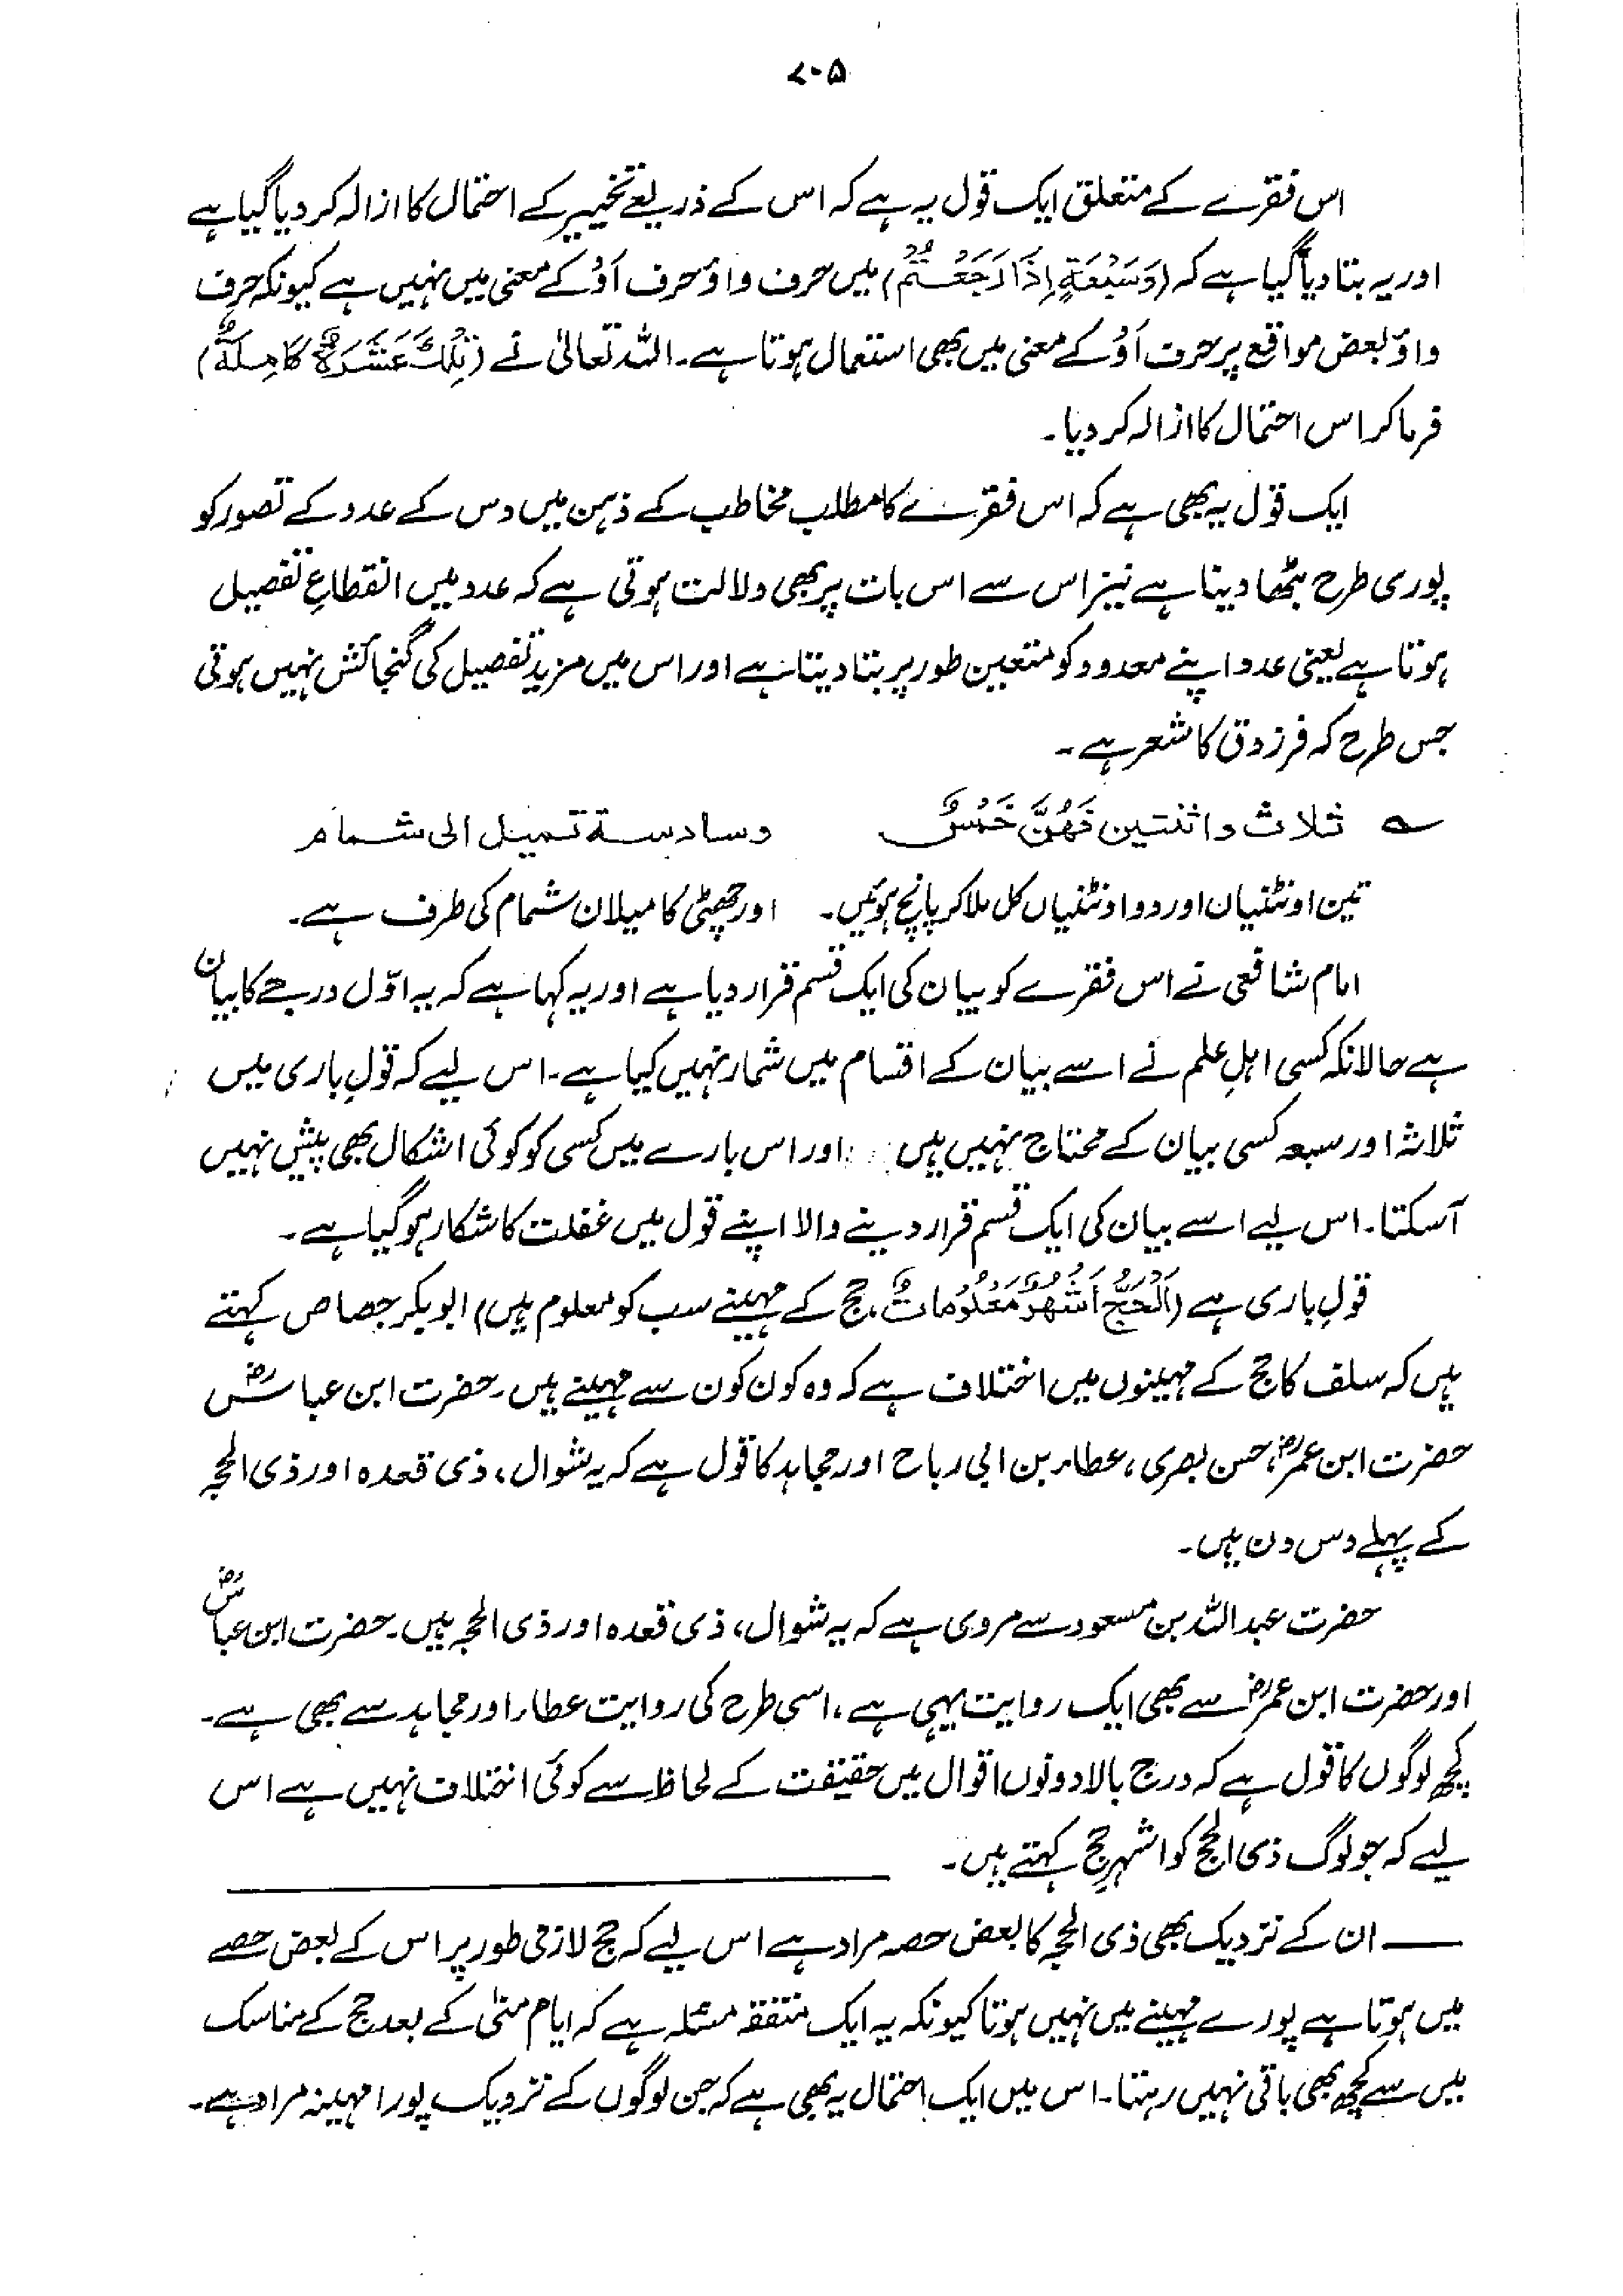 ۷۰۵
اس فقرے کے متعلق ایک قول یہ ہے کہ اس کے ذریعے تخییر کے احتمال کا ازالہ کر دیا گیا ہے
اور یہ بتا دیا گیا ہے کہ (وَسَبْعَةٍ اِذَا رَجَعْتُمْ) میں حرف واؤ حرف اَوْ کے معنی میں نہیں ہے کیونکہ حرفِ
واؤ بعض مواقع پر حرف اَوْ کے معنی میں بھی استعمال ہوتا ہے۔ اللہ تعالیٰ نے (تِلْكَ عَشَرَةٌ كَامِلَةٌ)
فرما کر اس احتمال کا ازالہ کر دیا۔
ایک قول یہ بھی ہے کہ اس فقرے کا مطلب مخاطب کے ذہن میں دس کے عدد کے تصور کو
پوری طرح بٹھا دینا ہے نیز اس سے اس بات پر بھی دلالت ہوتی ہے کہ عدد میں انقطاعِ تفصیل
ہوتا ہے یعنی عدد اپنے معدود کو متعین طور پر بتا دیتا ہے اور اس میں مزید تفصیل کی گنجائش نہیں ہوتی
جس طرح کہ فرزدق کا شعر ہے۔
؎ ثلاث واثنتین فَهُنَّ خَمْسٌ وسادسة تمیل الی شمام
تین اونٹنیاں اور دو اونٹنیاں کل ملا کر پانچ ہوئیں۔ اور چھٹی کا میلان شمام کی طرف ہے۔
امام شافعی نے اس فقرے کو بیان کی ایک قسم قرار دیا ہے اور یہ کہا ہے کہ یہ اوّل درجے کا بیان
ہے حالانکہ کسی اہلِ علم نے اسے بیان کے اقسام میں شمار نہیں کیا ہے۔ اس لیے کہ قولِ باری میں
ثلاثہ اور سبعہ کسی بیان کے محتاج نہیں ہیں اور اس بارے میں کسی کو کوئی اشکال بھی پیش نہیں
آسکتا۔ اس لیے اسے بیان کی ایک قسم قرار دینے والا اپنے قول میں غفلت کا شکار ہو گیا ہے۔
قولِ باری ہے (اَلْحَجُّ اَشْهُرٌ مَعْلُوْمَاتٌ، حج کے مہینے سب کو معلوم ہیں) ابوبکر جصاص کہتے
ہیں کہ سلف کا حج کے مہینوں میں اختلاف ہے کہ وہ کون کون سے مہینے ہیں۔ حضرت ابن عباسؓ
حضرت ابن عمرؓ، حسن بصری، عطاء بن ابی رباح اور مجاہد کا قول ہے کہ یہ شوال، ذی قعدہ اور ذی الحجہ
کے پہلے دس دن ہیں۔
حضرت عبداللہ بن مسعود سے مروی ہے کہ یہ شوال، ذی قعدہ اور ذی الحجہ ہیں۔ حضرت ابن عباسؓ
اور حضرت ابن عمرؓ سے بھی ایک روایت یہی ہے، اسی طرح کی روایت عطاء اور مجاہد سے بھی ہے۔
کچھ لوگوں کا قول ہے کہ درج بالا دونوں اقوال میں حقیقت کے لحاظ سے کوئی اختلاف نہیں ہے اس
لیے کہ جو لوگ ذی الحج کو اشہرِ حج کہتے ہیں۔
— ان کے نزدیک بھی ذی الحجہ کا بعض حصہ مراد ہے اس لیے کہ حج لازمی طور پر اس کے بعض حصے
میں ہوتا ہے پورے مہینے میں نہیں ہوتا کیونکہ یہ ایک متفقہ مسئلہ ہے کہ ایام منیٰ کے بعد حج کے مناسک
میں سے کچھ بھی باقی نہیں رہتا۔ اس میں ایک احتمال یہ بھی ہے کہ جن لوگوں کے نزدیک پورا مہینہ مراد ہے۔